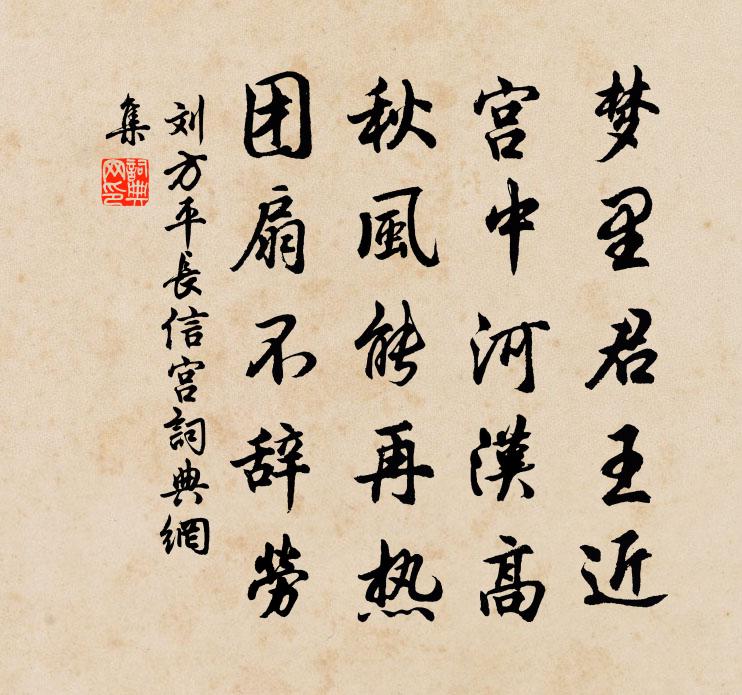 梦里君王近
宫中河漢高
秋風能再热
团扇不辞勞
刘方平長信宫詞典網
集
詞典
网印